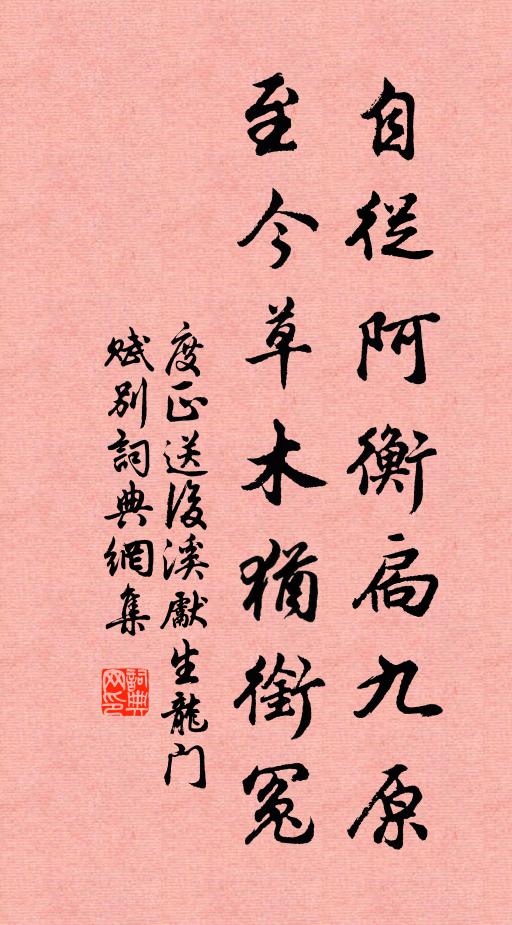 自從阿衡扃九原
至今草木猶銜冤
度正送後溪獻生龍門
賦別詞典網集
詞典網印